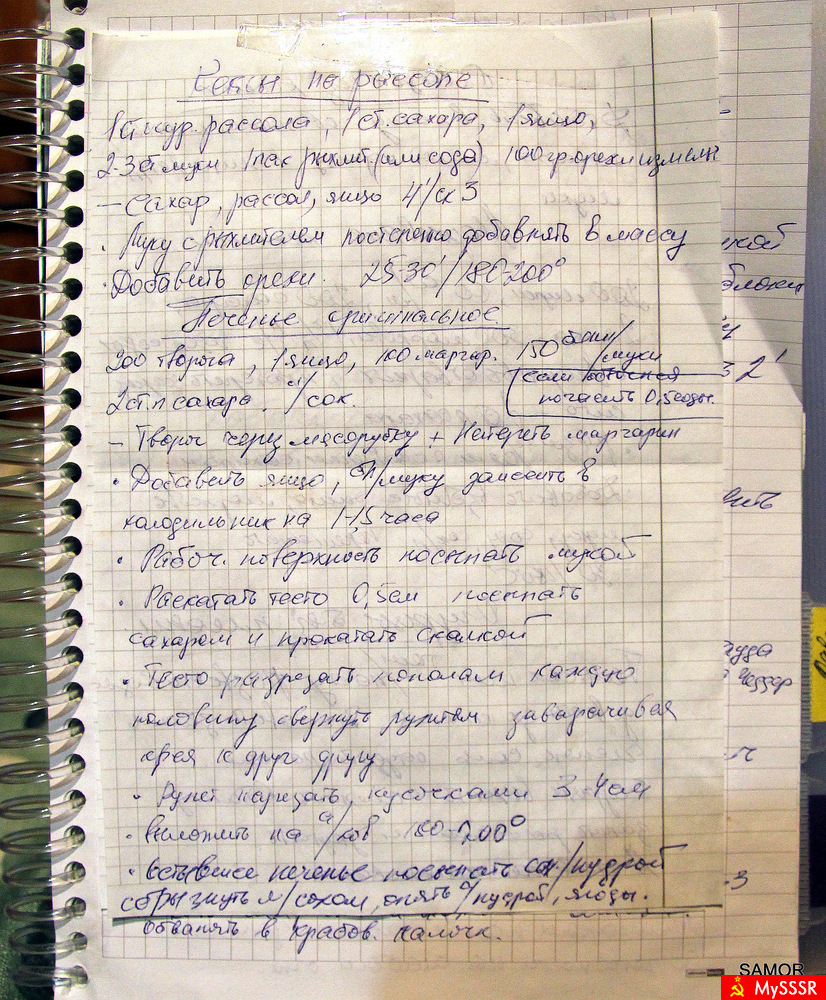 Кексы на рассоле
1 ст. огур. рассола, 1 ст. сахара, 1 яйцо,
2-3 ст муки 1 пак рыхлит. (или сода) 100 гр. орехи измельч
– Сахар, рассол, яйцо 4'/ск 3
· Муку с рыхлителем постепенно добавлять в массу
· Добавить орехи. 25-30'/180-200°
Печенье оригинальное.
200 творога, 1 яйцо, 100 маргар. 150 /муки
2 ст. л сахара. /сок.
(если
погасить 0,5 соды.
– Творог через мясорубку + Натереть маргарин
· Добавить яйцо, /муку замесить в
холодильник на 1-1,5 часа
· Рабоч. поверхность посыпать мукой
· Раскатать тесто 0,5 см посыпать
сахаром и прокатать скалкой
· Тесто разрезать пополам каждую
половину свернуть рулетом заварачивая
края к друг другу
· Рулет нарезать кусочками 3-4 см
· Выложить на 180-200°
· Остывшее печенье посыпать сах/пудрой
сбрызнуть л/соком, опять с/пудрой, ягоды.
Обвалять в крабов. палочк.
кой
яблоки
2'
SAMOR
MySSSR